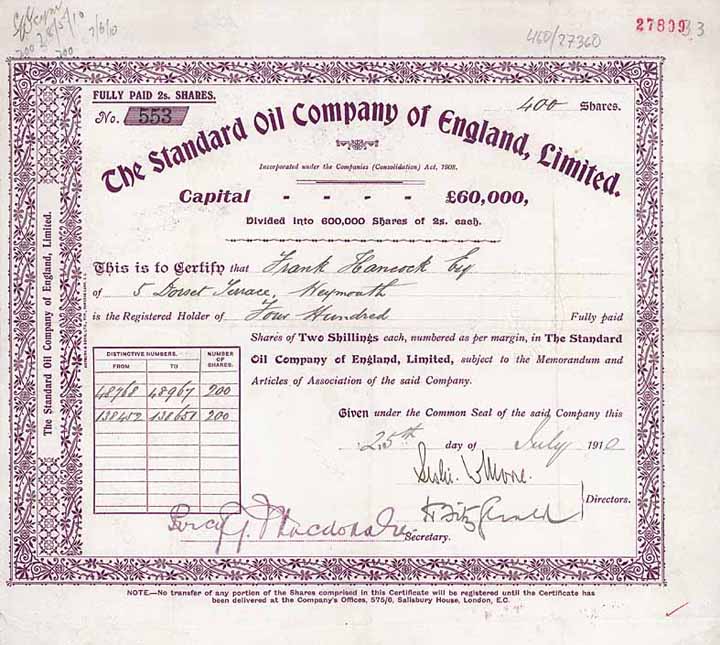 460/27360
27809 33
FULLY PAID 2s. SHARES.
No. 553
400 Shares.
The Standard Oil Company of England, Limited.
Incorporated under the Companies (Consolidation) Act, 1908.
Capital - - - - £60,000,
Divided into 600,000 Shares of 2s. each.
This is to Certify that Frank Hancock Esq
of 5 Dorset Terrace, Weymouth
is the Registered Holder of Four Hundred Fully paid
Shares of Two Shillings each, numbered as per margin, in The Standard
Oil Company of England, Limited, subject to the Memorandum and
Articles of Association of the said Company.
DISTINCTIVE NUMBERS. NUMBER OF SHARES.
FROM TO
48768 48967 200
138452 138651 200
Given under the Common Seal of the said Company this
25th day of July 1910
Leslie. W More.
Fitzgerald
Directors.
Percy G. Macdonald
Secretary.
The Standard Oil Company of England, Limited.
NOTE.—No transfer of any portion of the Shares comprised in this Certificate will be registered until the Certificate has
been delivered at the Company's Offices, 575/6, Salisbury House, London, E.C.